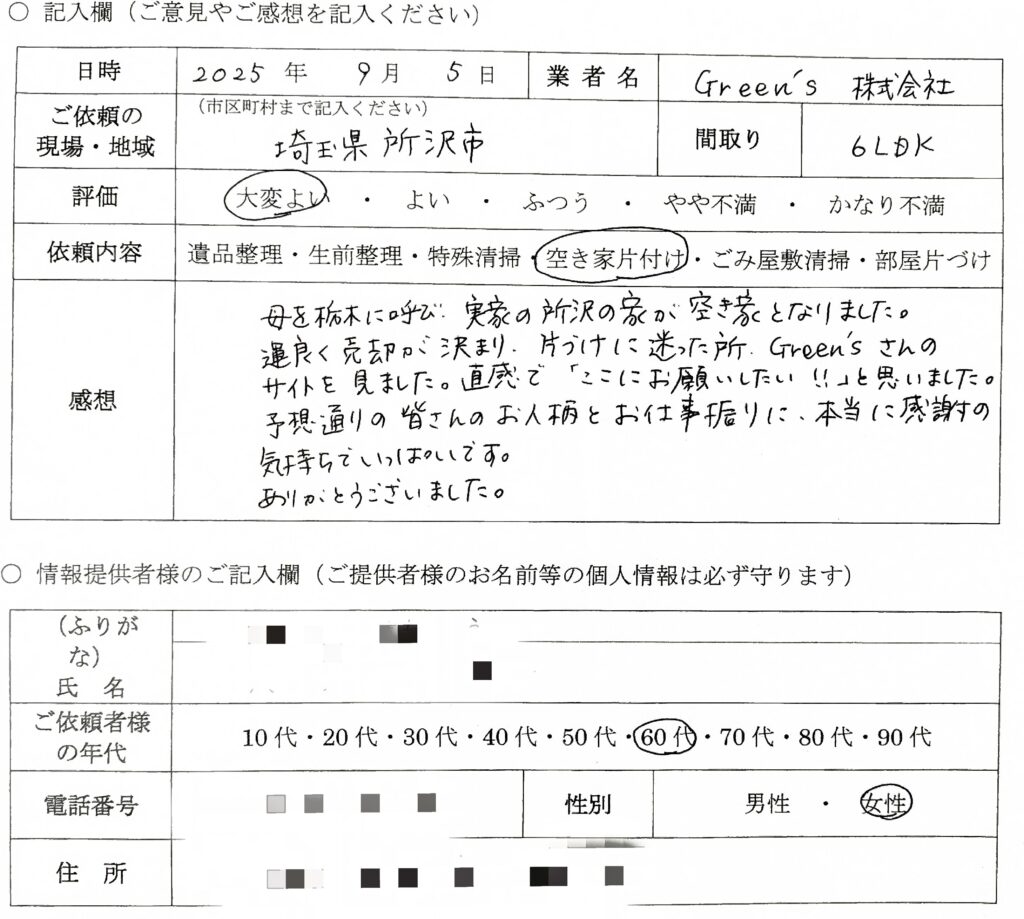 ○ 記入欄（ご意見やご感想を記入ください）
日時 2025 年 9 月 5 日 業者名 Green's 株式会社
ご依頼の現場・地域 （市区町村まで記入ください） 埼玉県所沢市 間取り 6LDK
評価 大変よい ・ よい ・ ふつう ・ やや不満 ・ かなり不満
依頼内容 遺品整理・生前整理・特殊清掃・空き家片付け・ごみ屋敷清掃・部屋片づけ
感想
母を栃木に呼び、実家の所沢の家が空き家となりました。
運良く売却が決まり、片づけに迷った所、Green'sさんの
サイトを見ました。直感で「ここにお願いしたい!!」と思いました。
予想通りの皆さんのお人柄とお仕事振りに、本当に感謝の
気持ちでいっぱいです。
ありがとうございました。
○ 情報提供者様のご記入欄（ご提供者様のお名前等の個人情報は必ず守ります）
（ふりがな）
氏 名
ご依頼者様の年代 10代・20代・30代・40代・50代・60代・70代・80代・90代
電話番号 性別 男性 ・ 女性
住 所